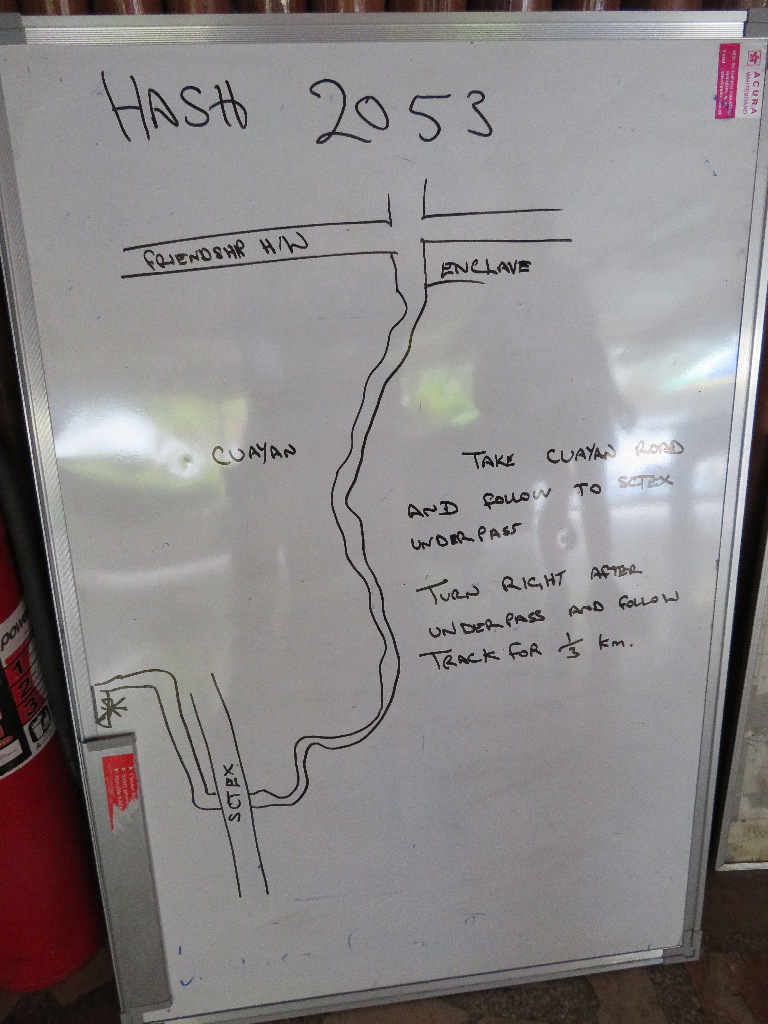 HASH 2053
ACURA
WHITEBOARD
FRIENDSHP H/W
ENCLAVE
CUAYAN
TAKE CUAYAN ROAD
AND FOLLOW TO SCTEX
UNDERPASS
TURN RIGHT AFTER
UNDERPASS AND FOLLOW
TRACK FOR 1/3 km.
SCTEX
1
2
3